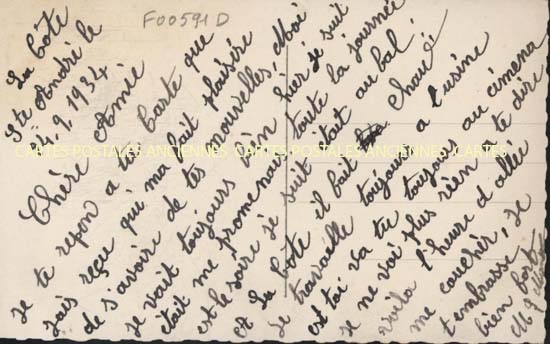 F00591D
La Côte
Ste Andri le
4.9.1934
Chère Amie
Je te repon a ta Carte que
jais reçu qui ma fait plaisire
de s'avoire de tes nouvelles, Moi
Je vait toujours bien hier je suit
était me promenait toute la journée
est le soire je suit était au bal;
a La Côte il fait chaud
Je travaille toujours a l'usine
est toi va tu toujours au cimena
Je ne voi plus rien a te dire
voila l'heure d'allé
me coucher, Je
t'embrasse
bien fort
CARTES POSTALES ANCIENNES CARTES POSTALES ANCIENNES CARTES